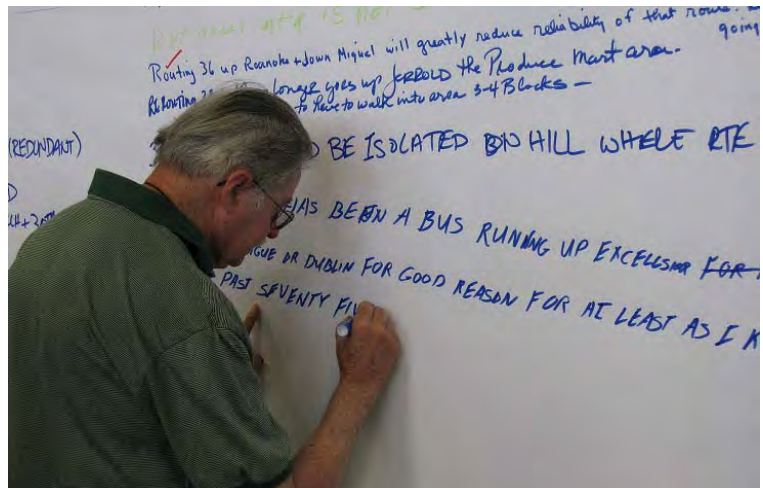 Routing 36 up Roanoke + down Miguel will greatly reduce reliability of that route.
going
Rerouting longer goes up JERROLD the Produce Mart area.
to have to walk into area 3-4 Blocks —
(REDUNDANT)
BE ISOLATED ON HILL WHERE RTE
HAS BEEN A BUS RUNNING UP EXCELSIOR FOR
OR DUBLIN FOR GOOD REASON FOR AT LEAST AS I K
PAST SEVENTY FIV